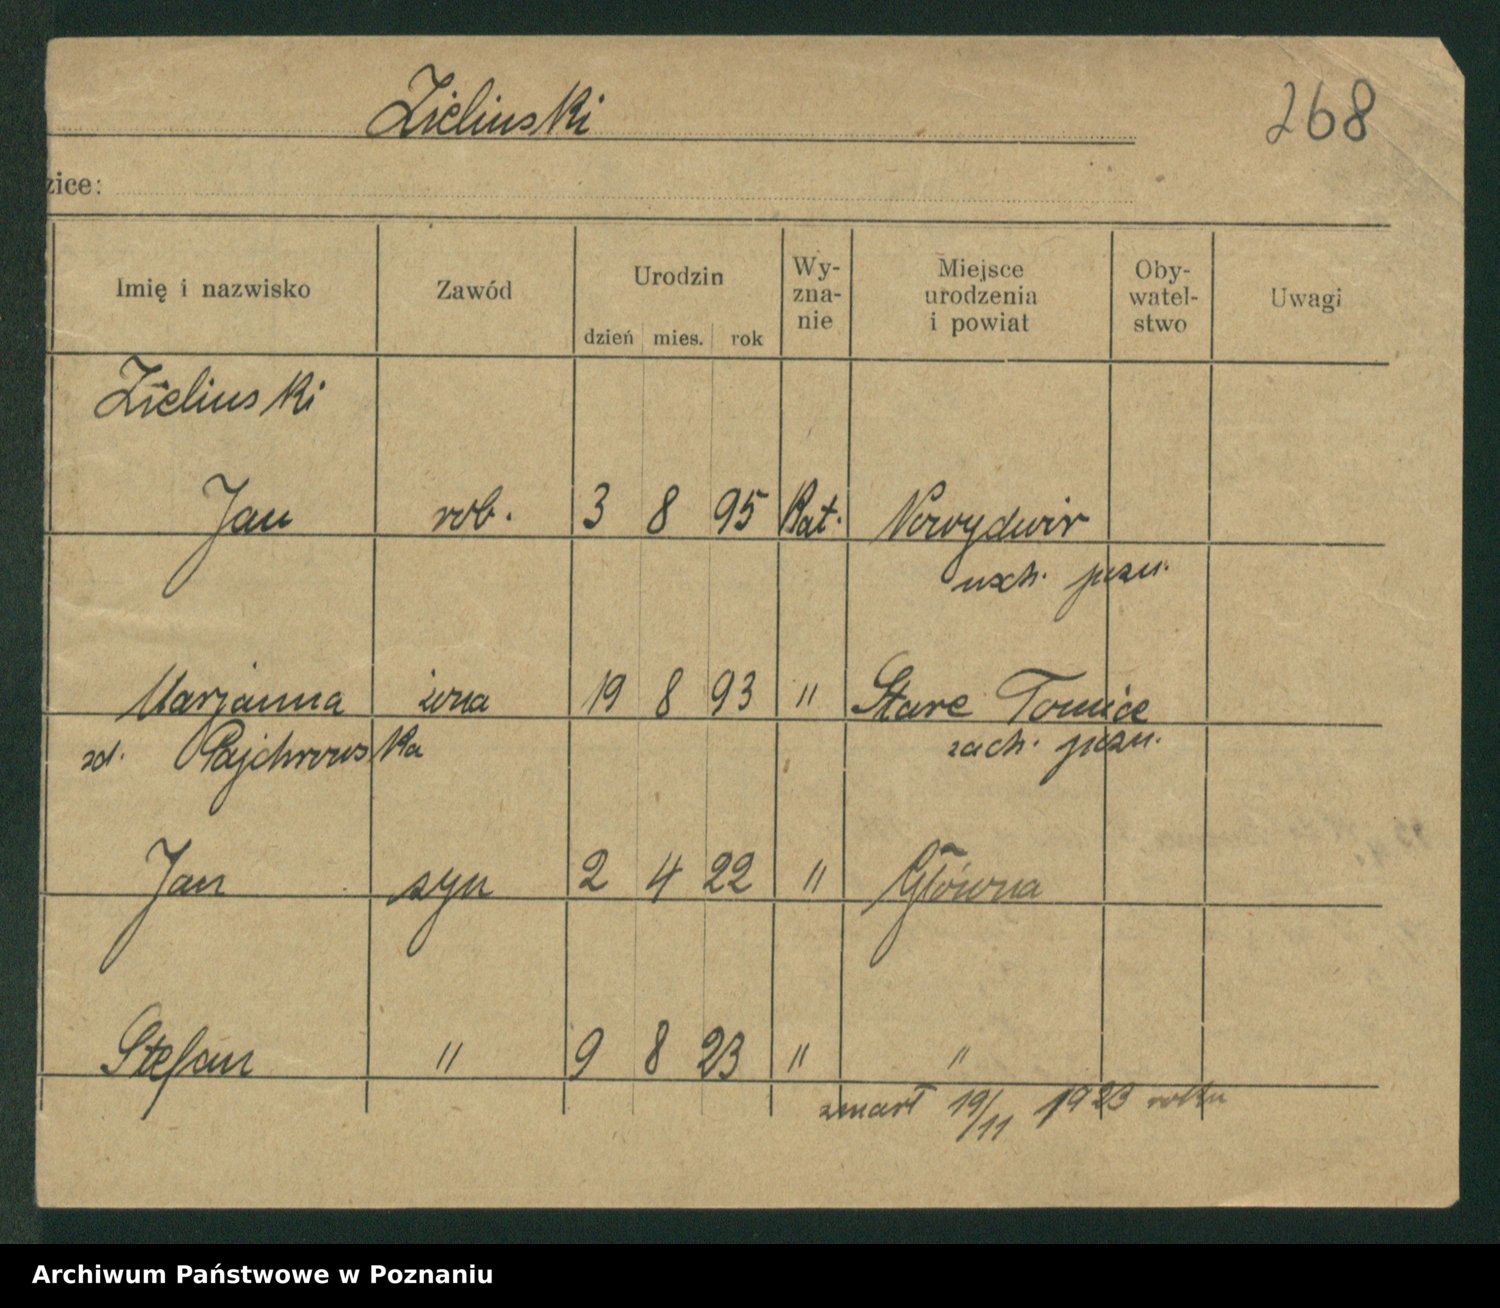 Zielinski
268
zice:
Imię i nazwisko Zawód Urodzin Wy-zna-nie Miejsce urodzenia i powiat Oby-watel-stwo Uwagi
dzień mies. rok
Zielinski
Jan rob. 3 8 95 Kat. Nowydwór
wsch. pozn.
Marjanna żona 19 8 93 " Stare Tomice
zd. Pajchrowska zach. pozn.
Jan syn 2 4 22 " Główna
Stefan " 9 8 23 " "
zmarł 19/11 1923 roku
Archiwum Państwowe w Poznaniu